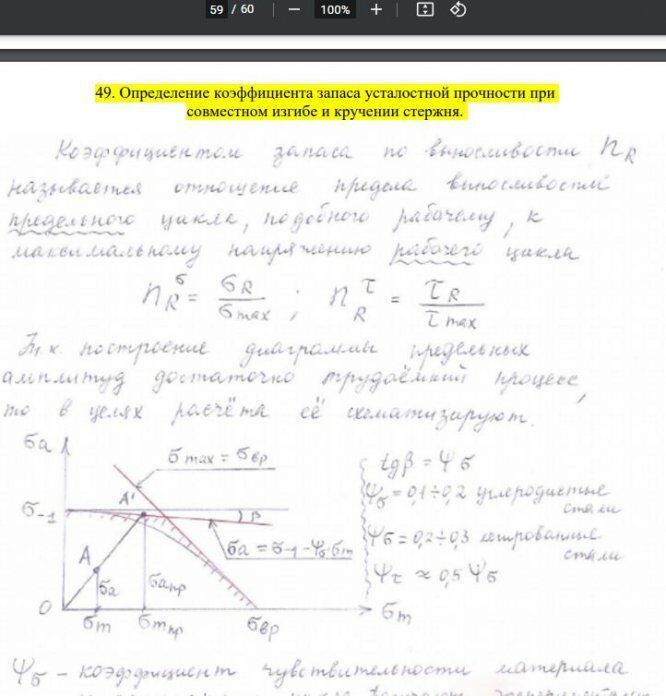 59 / 60 — 100% +
49. Определение коэффициента запаса усталостной прочности при
совместном изгибе и кручении стержня.
Коэффициентом запаса по выносливости n_R
называется отношение предела выносливости
предельного цикла, подобного рабочему, к
максимальному напряжению рабочего цикла
n_R^σ = σ_R / σ_max ; n_R^τ = τ_R / τ_max
Т. к. построение диаграммы предельных
амплитуд достаточно трудоёмкий процесс,
то в целях расчёта её схематизируют.
σa
σ max = σвр
A'
σ-1
β
A
σa
σa пр
σa = σ-1 - ψσ·σm
0
σm
σm пр
σвр
σm
tgβ = ψσ
ψσ = 0,1÷0,2 углеродистые
стали
ψσ = 0,2÷0,3 легированные
стали
ψτ ≈ 0,5 ψσ
ψσ - коэффициент чувствительности материала